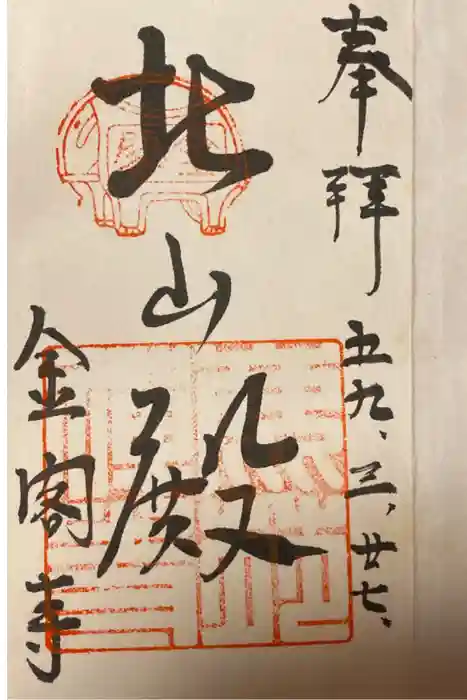 奉拝
五九、三、廿七、
北山殿
金閣寺